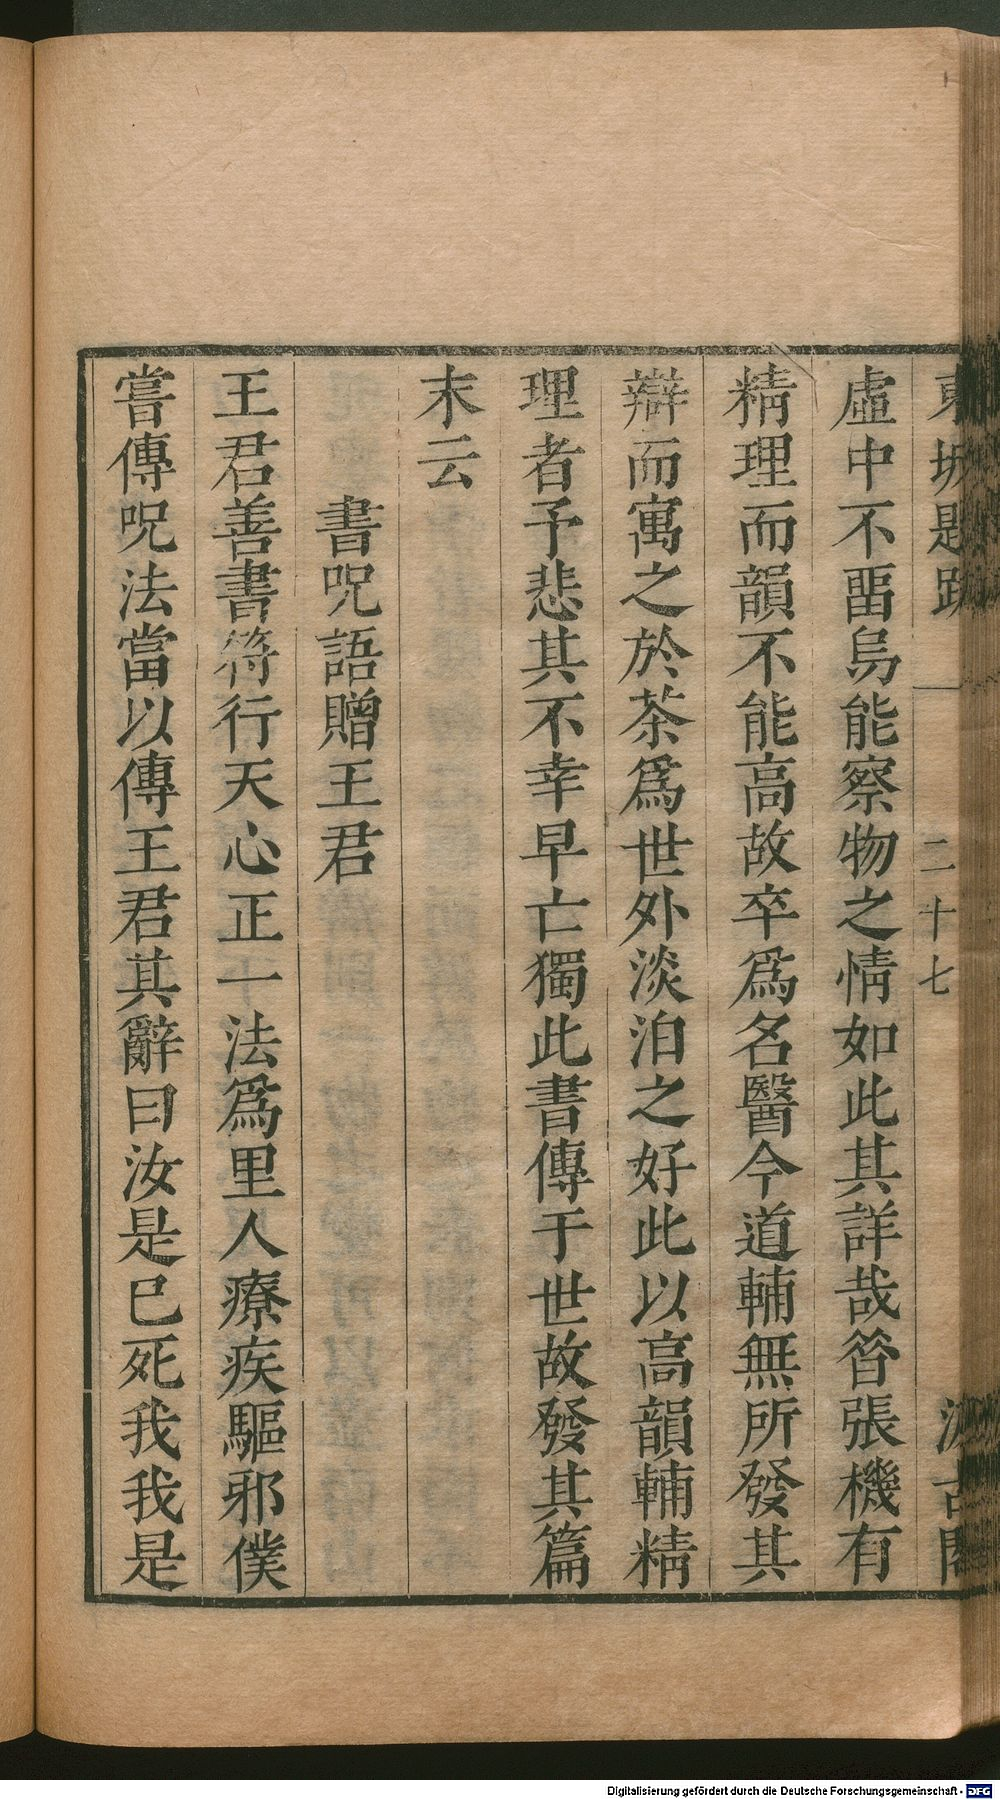 東坡題跋 二十七 汲古閣
虛中不畱烏能察物之情如此其詳哉昝張機有
精理而韻不能高故卒爲名醫今道輔無所發其
辯而寓之於茶爲世外淡泊之好此以高韻輔精
理者予悲其不幸早亡獨此書傳于世故發其篇
末云
書呪語贈王君
王君善書符行天心正一法爲里人療疾驅邪僕
嘗傳呪法當以傳王君其辭曰汝是已死我我是
Digitalisierung gefördert durch die Deutsche Forschungsgemeinschaft - DFG